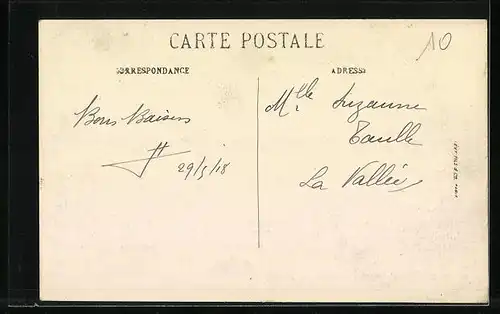 CARTE POSTALE
10
CORRESPONDANCE
ADRESSE
Bons Baisers
29/5/18
Mlle Suzanne
Taulle
La Vallée